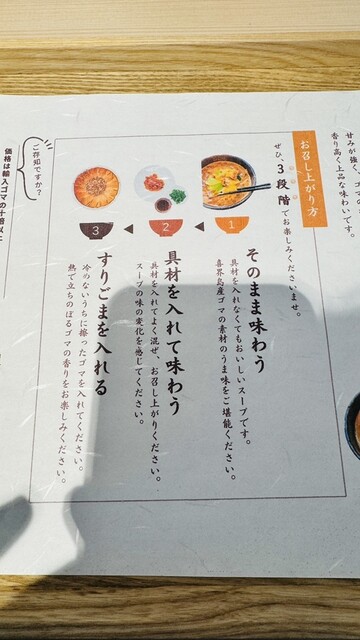 甘みが強く、
香り高く上品な味わいです。
お召し上がり方
ぜひ、3段階でお楽しみくださいませ。
1
そのまま味わう
具材を入れなくてもおいしいスープです。
喜界島産ゴマの素材のうま味をご堪能ください。
2
具材を入れて味わう
具材を入れてよく混ぜ、お召し上がりください。
スープの味の変化を感じてください。
3
すりごまを入れる
冷めないうちに擦ったゴマを入れてください。
熱で立ちのぼるゴマの香りをお楽しみください。
ご存知ですか?
価格は輸入ゴマの十倍以上